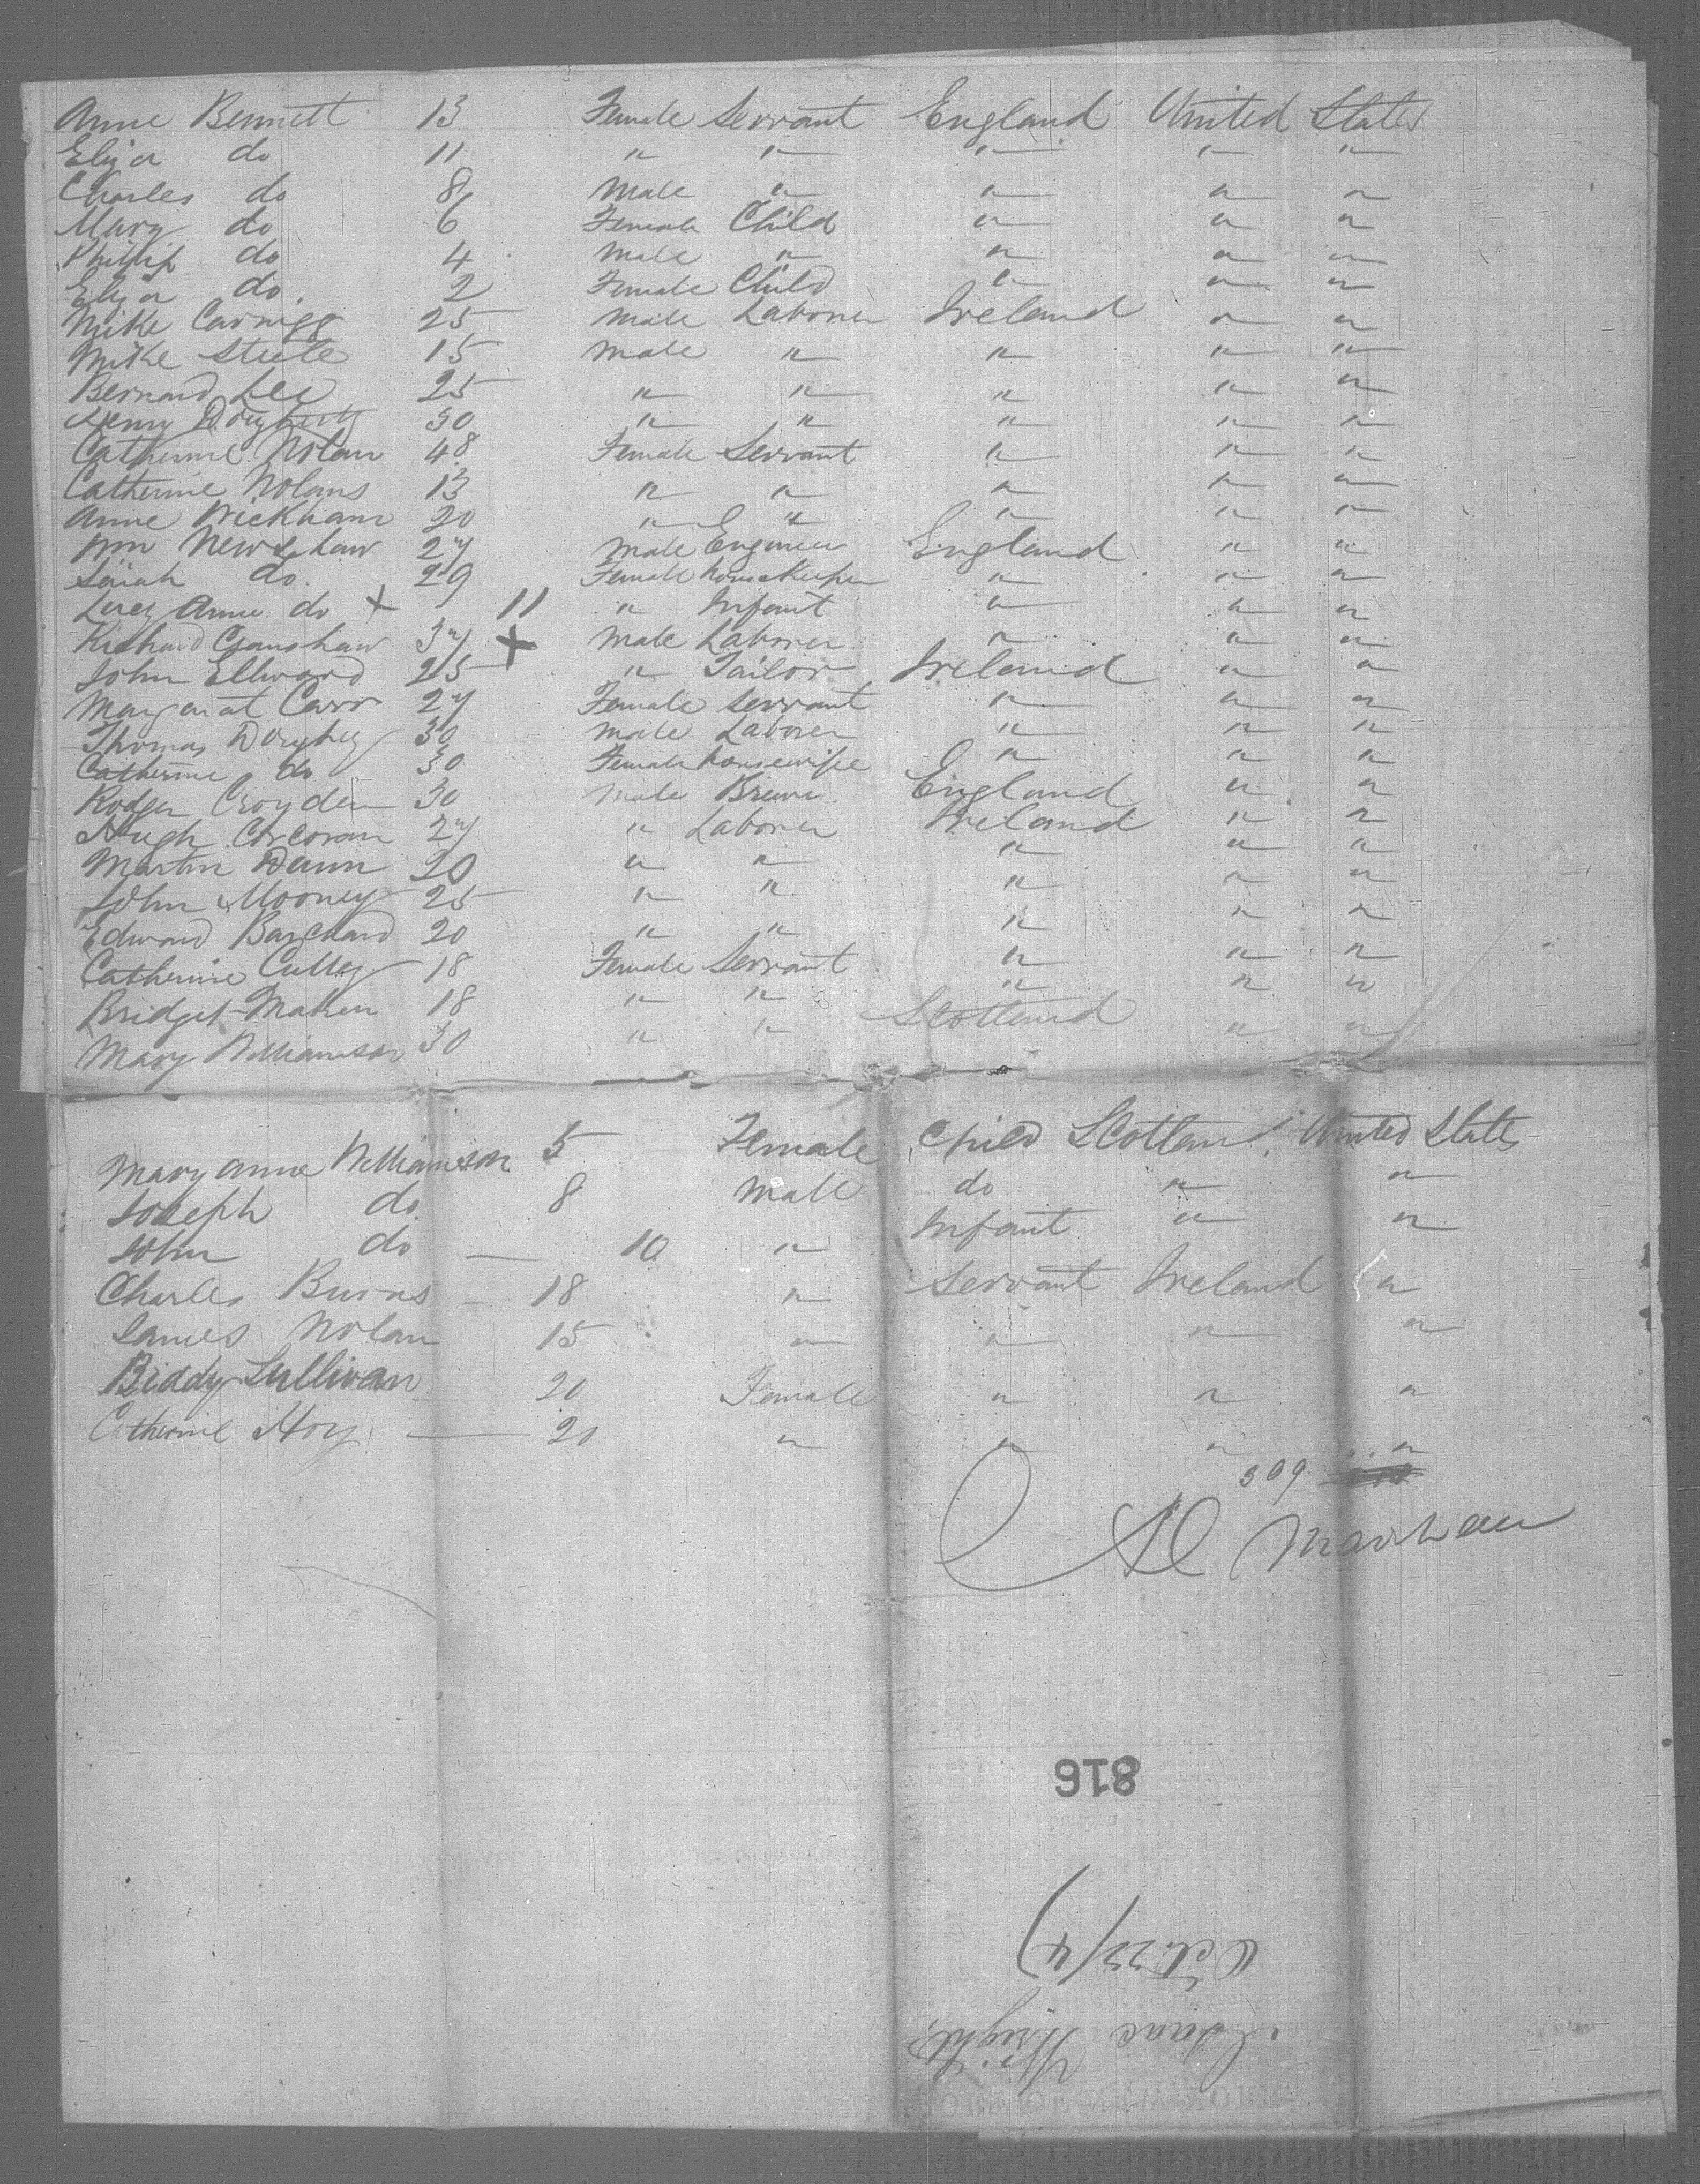 Anne Bennett 13 Female Servant England United States
Eliza do 11 " " " " "
Charles do 8 male " " " "
Mary do 6 Female Child " " "
Phillip do 4 male " " " "
Eliza do. 2 Female Child " " "
Mike 25 male Laborer Ireland " "
Mike Steele 15 male " " " "
Bernard Lee 25 " " " " "
Henry 30 " " " " "
Catherine Nolan 48 Female Servant " " "
Catherine Nolans 13 " " " " "
Anne Wickham 20 " " " " "
Wm Newshaw 27 male Engineer England " "
Sarah do. 29 Female housekeeper " " "
Lucy Anne do x 11 " Infant " " "
Richard 37 x male Laborer " " "
John Ellward 25 " Tailor Ireland " "
Margarat Carr 27 Female Servant " " "
Thomas 30 male Laborer " " "
Catherine do 30 Female housewife " " "
Rodger Croyden 30 male England " "
Hugh Corcoran 27 " Laborer Ireland " "
Martin Dunn 20 " " " " "
John Mooney 25 " " " " "
Edward 20 " " " " "
Catherine Culley 18 Female Servant " " "
Bridget Maken 18 " " " " "
Mary Williamson 30 " " Scotland " "
Mary Anne Williamson 5 Female Child Scotland United States
Joseph do. 8 male do " "
John do 10 " Infant " "
Charles Burns 18 " Servant Ireland "
James Nolan 15 " " " "
Biddy Sullivan 20 Female " " "
Catherine Hoy 20 " " " "
309
816
Oct 25/4)
Isaac Wright